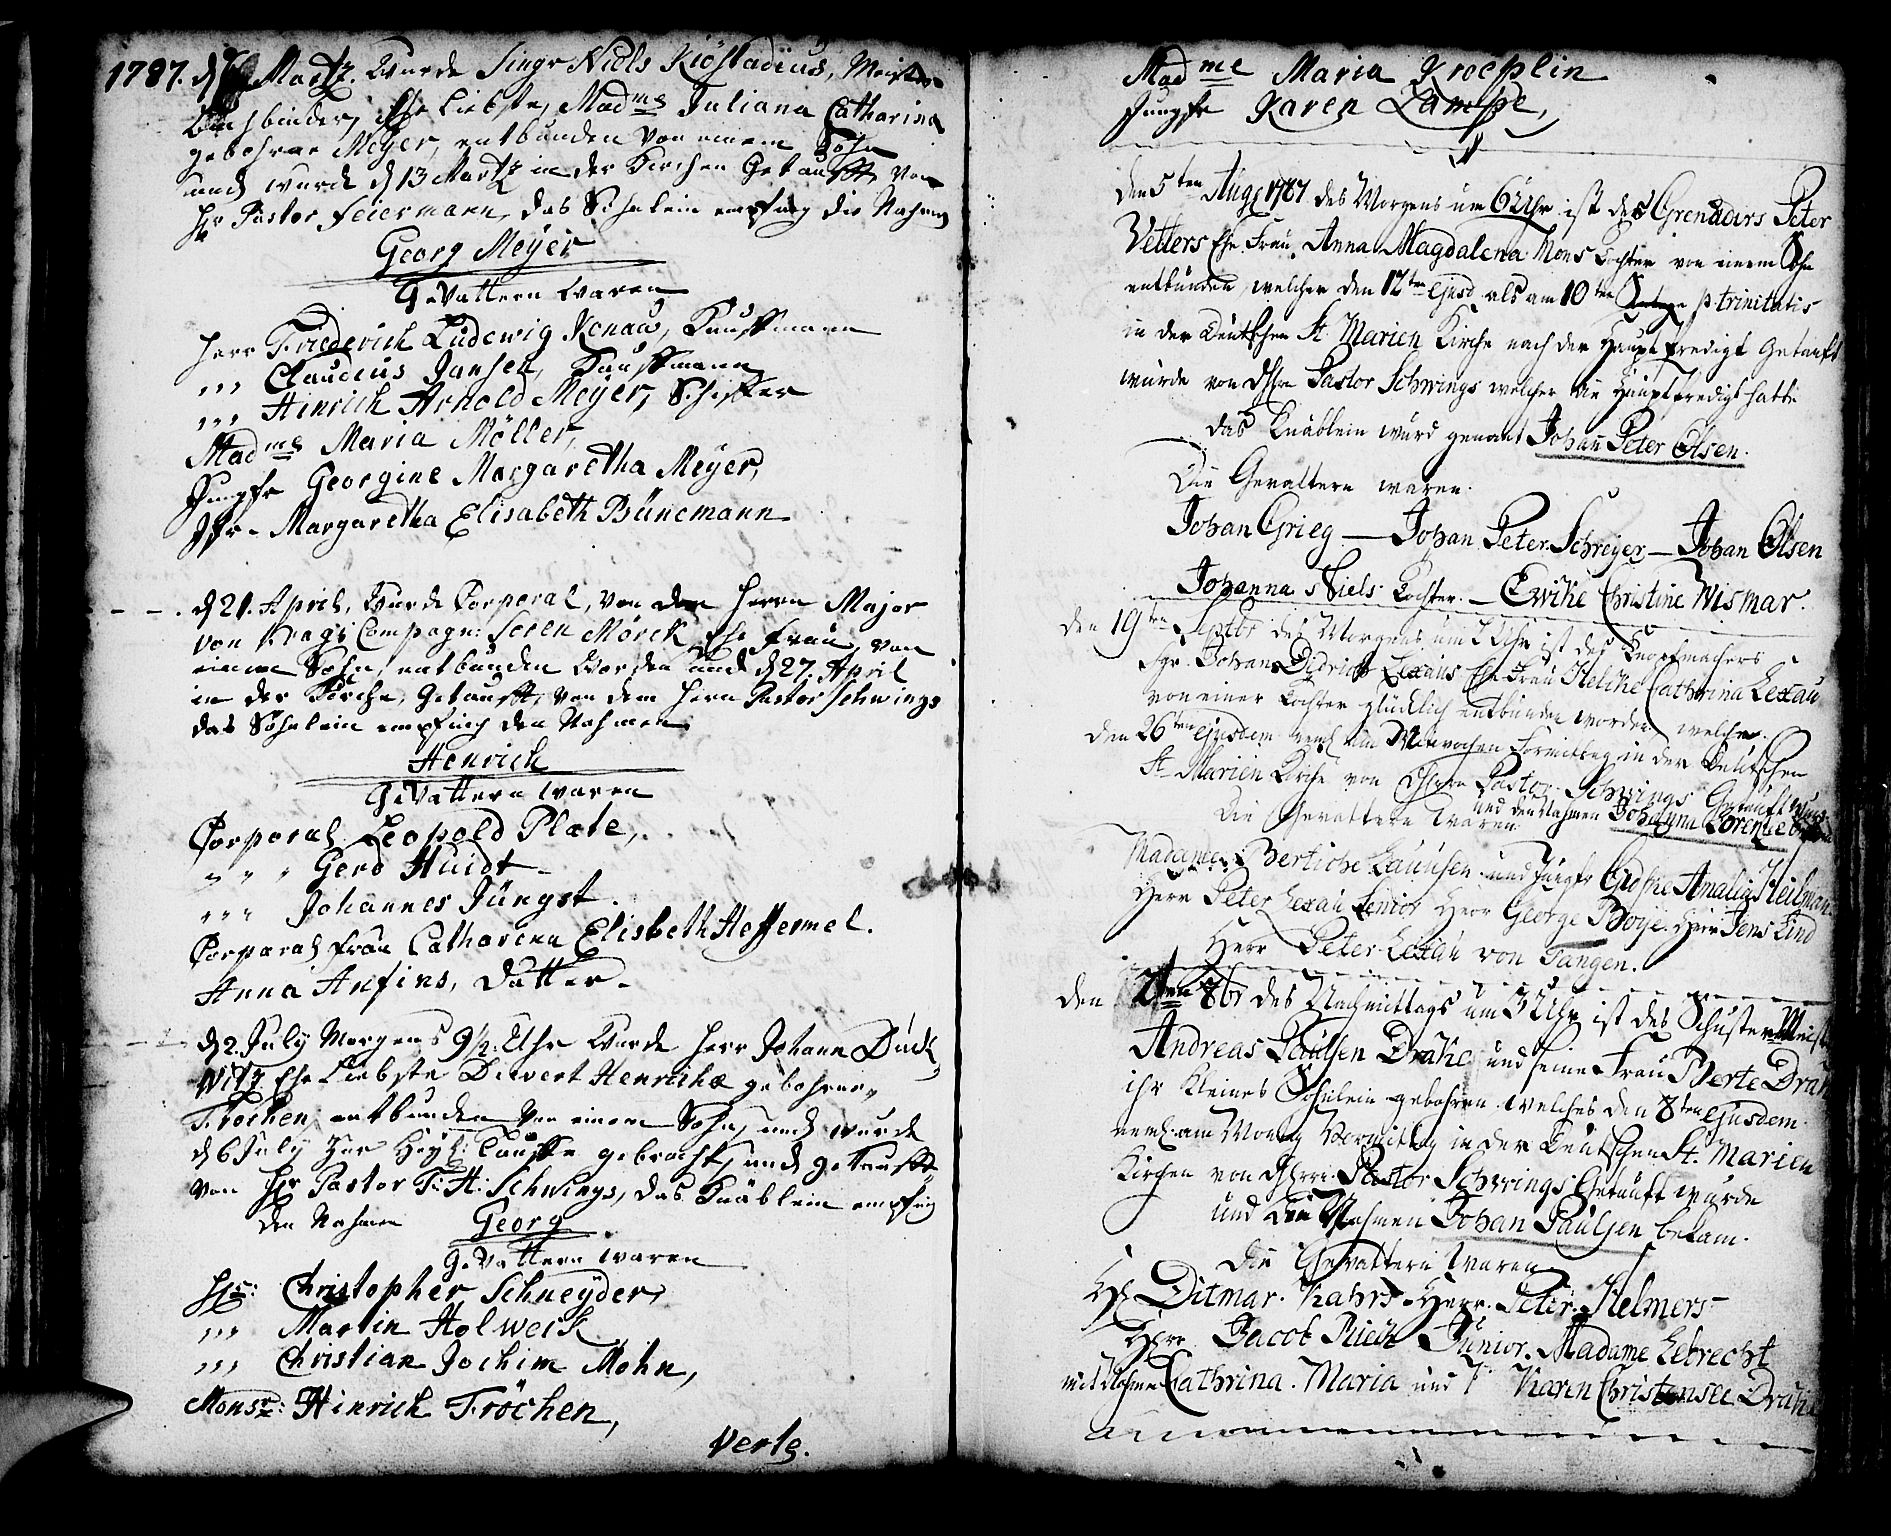 1787. d Martz. Wurde Singr Niels Kiöstadius, Meister
Buchbinder, Ehe Liebste, Madme Juliana Catharina
gebohrne Meyer, entbunden von einem Sohn
und wurde d 13 Martz in der Kirchen Getaufft, von
Hr Pastor Feiermann, das Söhnlein empfing die Nahmen
Georg Meyer
GeVattern Waren
Herr Friederich Ludewig Konau, Kauffmann
,,, Claudius Jansen, Kauffmann
,,, Hinrich Arnold Meyer, Schiffer
Madme Maria Möller,
Jungfr Georgine Margaretha Meyer,
Jfr. Margaretha Elisabeth Bünemann
- - . d 21. April, Wurde Corporal, von dem Herrn Major
von Krags Compagn: Seren Mörck Ehe Frau, von
einem Sohn, entbunden Worden und d 27. April
in der Kirche, Getaufft, von dem Herrn Pastor Schwings
das Söhnlein empfing den Nahmen
Henrich
GeVattern waren
Corporal Leopold Plate,
,,, Gerd Huidt
,,, Johannes Jüngst.
Corporals Frau Catharena Elisbeth Heffermel.
Anna Anfins, Datter.
- - d 2. July Morgens 9½ Uhr Wurde Herr Johann Duck
Witz Ehe Liebste Dievert Henrichæ gebohren,
Fröchen, entbunden von einem Sohn, und wurde
d 6 July Zur Heyl: Tauffe gebracht, und getaufft
von Hr Pastor F: H: Schwings, das Knäblein empfing
den Nahmen Georg
GeVattern waren
Hr: Christopher Schneyder,
,,, Martin Holweck
,,, Christian Jochim Mohn,
Monsr: Hinrich Fröchen,
Verte.
Madme Maria Kroeplin
Jungfr Karen Lampe,
Den 5ten Aug 1787 des Morgens um 6 Uhr ist des Grenadirs Peter
Vetters Ehe Frau, Anna Magdalena Mons Tochter von einem Sohn
entbunden, welcher den 12ten ejusd. als am 10ten p. trinitatis
in der Deutschen St Marien Kirche nach der Haupt Predigt Getauft
wurde von Pastor Schwings welcher die Hauptpredigt hatte
das Knäblein wurd genant Johan Peter Olsen.
Die Gevattern waren.
Johan Grieg — Johan Peter Schreyer — Johan Olsen
Johanna Niels Tochter. — Ewike Christine Wismar.
den 19ten Septbr des Morgens um 2 Uhr ist des Knopfmachers
Sgr. Johan Didrich Lexaus Ehe Frau Helche Cathrina Lexau
von einer Tochter glücklich entbunden worden welche
den 26ten ejusdem am Mitwochen Formittag in der Deutschen
St Marien Kirche von Pastor Schwings Getauft wurde
und den Nahmen
Die Gevattern waren
Madame Bertiche Lauusen und Jungfr Amalia Heilman
Herr Peter Lexau Senior Herr George Boye. Herr Jens Lind
Herr Peter Lexau von Tangen.
den 2ten 8br des Nachmittags um 3 Uhr ist des Schuster Meister
Andreas Paulsen Drake und seine Frau Berte Drake
ihr kleines Söhnlein gebohren welches den 8ten ejusdem.
am Montag Vormittag in der Deutschen St. Marien
Kirchen von Pastor Schwings Getauft wurde
und den Nahmen Johan Paulsen bekam.
Die Gevattern waren
Hr Ditmar. Kahrs. Herr. Peter. Helmers
Herr Jacob Rieck Junior. Madame Lebrecht
mit Nahmen Cathrina. Maria und Karen Christensee Drake